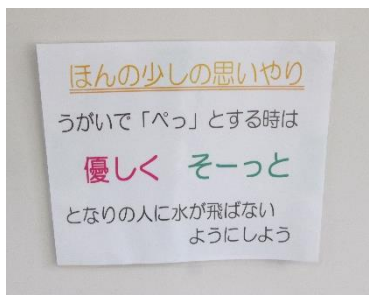 ほんの少しの思いやり
うがいで「ぺっ」とする時は
優しく そーっと
となりの人に水が飛ばない
ようにしよう